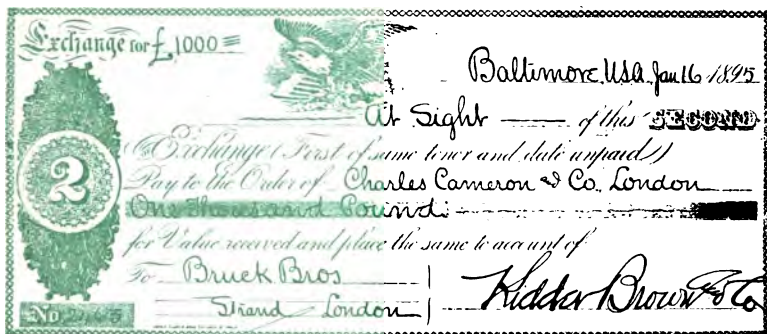 Exchange for £1000
Baltimore, USA. Jan 16 1895
At Sight of this SECOND
2
of Exchange (First of same tenor and date unpaid)
Pay to the Order of Charles Cameron & Co. London
One Thousand Pound
for Value received and place the same to account of
To Bruck Bros
Strand London
Kidder Brown & Co
No